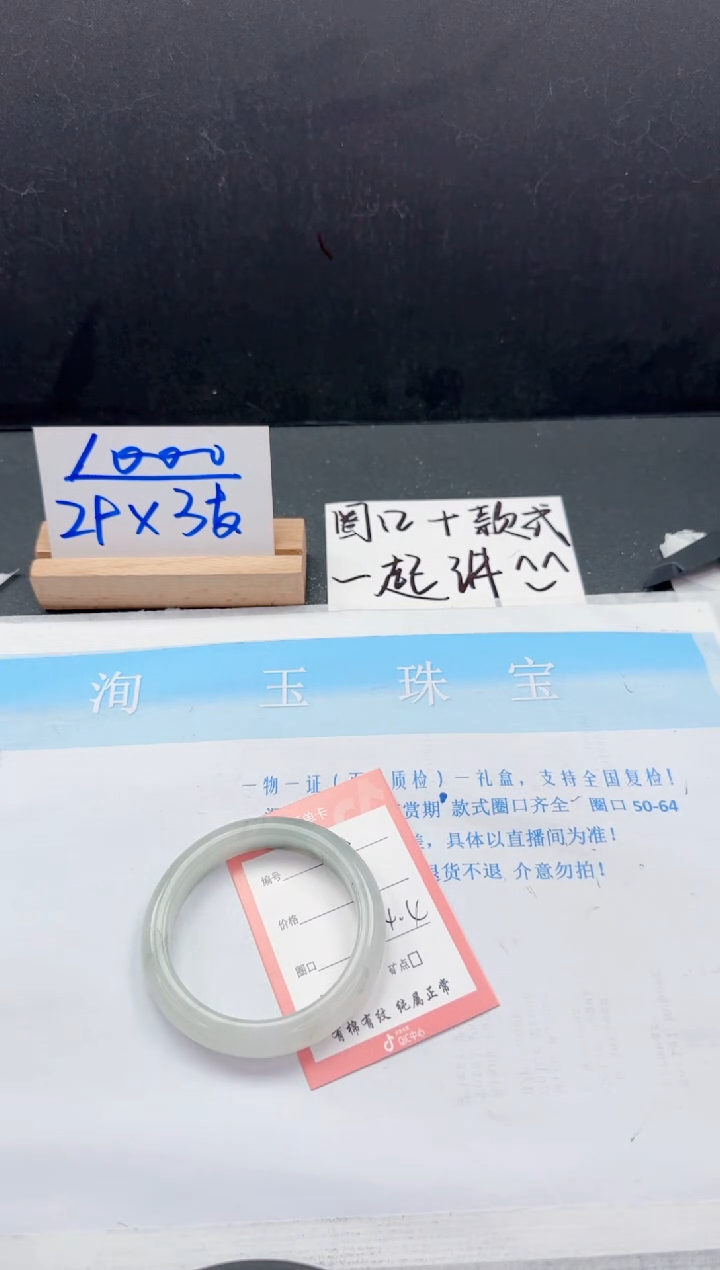 1000
2P×3支
圈口+款式
一起讲^^
洵玉珠宝
一物一证(
质检)一礼盒,支持全国复检!
赏期 款式圈口齐全 圈口 50-64
,具体以直播间为准!
退货不退 介意勿拍!
单卡
编号
价格
圈口
矿点
有棉有纹 纯属正常
QIC中心